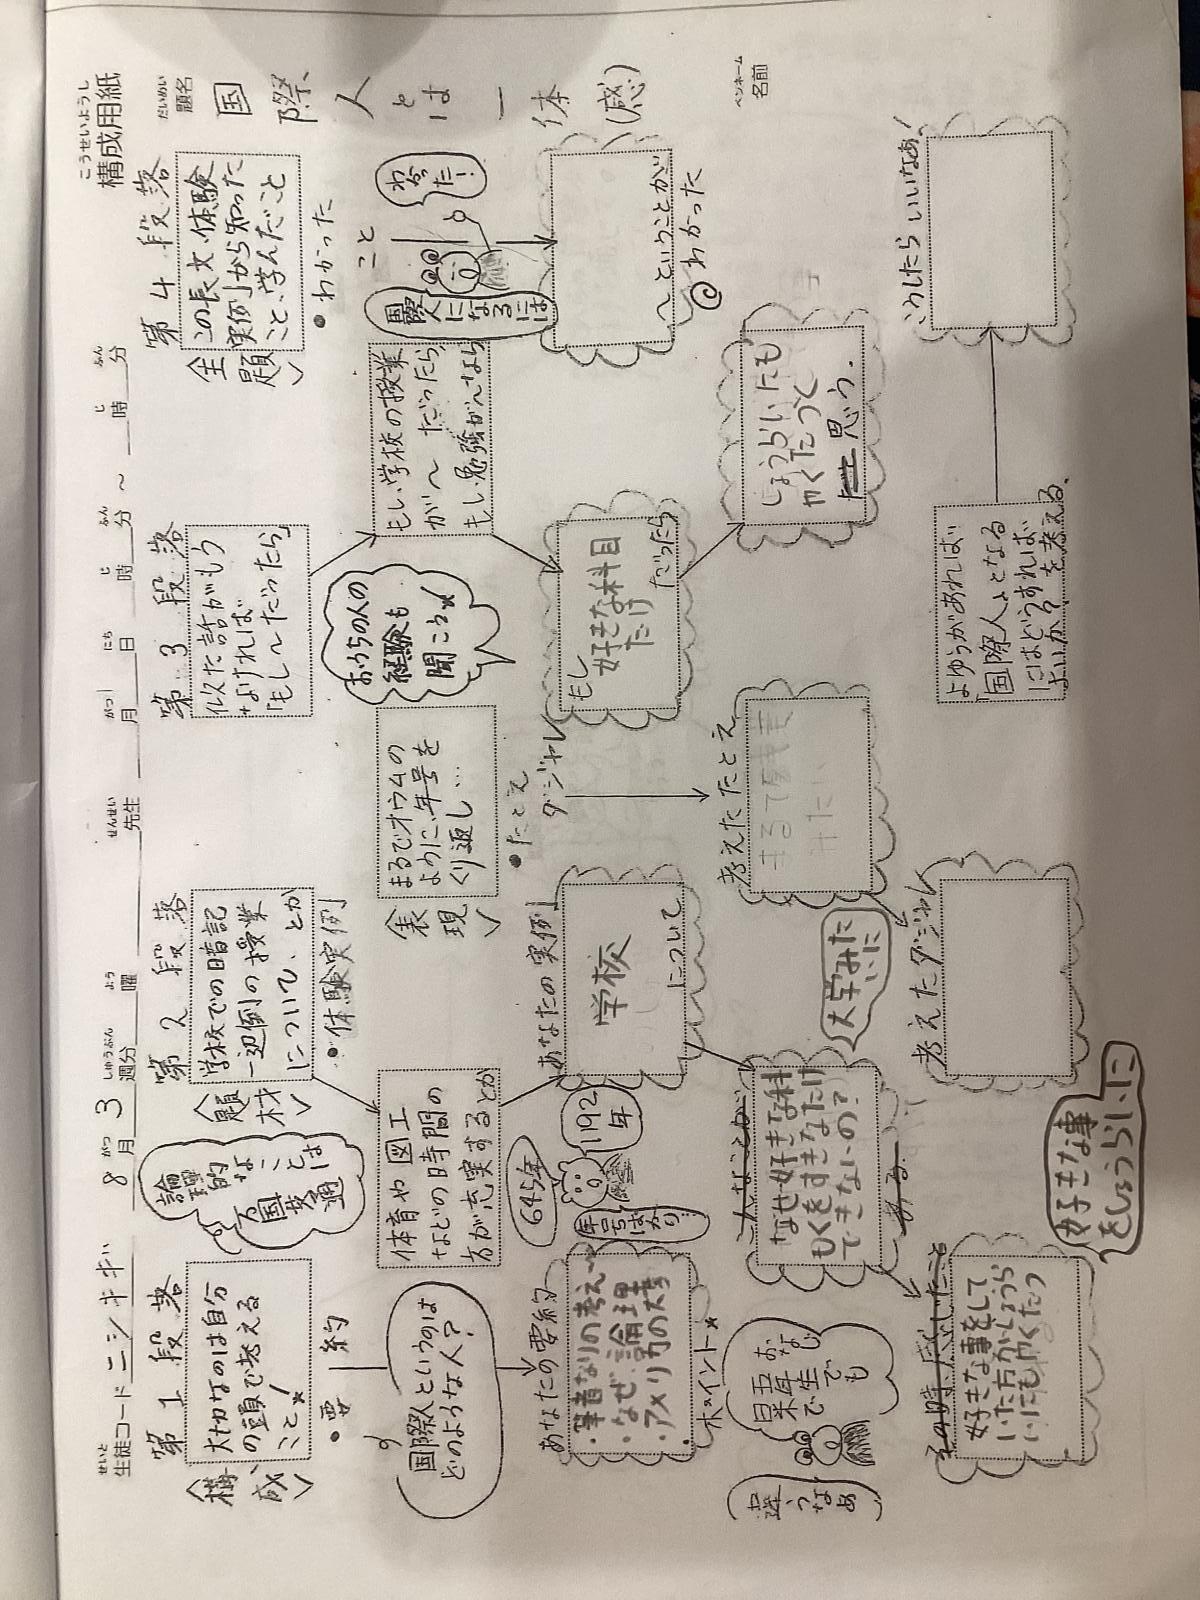 こうせいようし
構成用紙
せいと
生徒コード ニシキギ
8月 3週分
がつ しゅうぶん
曜 よう
先生 せんせい
月 がつ 日 にち 時 じ 分 ふん 〜 時 じ 分 ふん
だいめい
題名
国際人とは一体(感)
ペンネーム
名前
第1段落
<構成>
大切なのは自分
の頭で考える
こと!
・要約
国際人というのは
どのような人?
あなたの要約
・筆者なりの考え
・なぜ論理
・アメリカの大事
ポイント
おなじ
五年生でも
違うなあ
論理的
なことは
万国共通
第2段落
<題材>
学校での暗記
一辺倒の授業
について、とか
・体験実例
体育や図工
などの時間の
方が充実するとか
645年
1192年
年号ばかり!
あなたの実例
学校
について
なぜ好きな科
もくをすきなだけ
できないの?
ある。
大学みた
いに
その時、感じたこと
好きな事をして
いた方がしょうら
いにもやくたつ
好きな事
をしょうらいに
<表現>
まるでオウムの
ように、年号を
くり返し…
・たとえ
ダジャレ
考えたたとえ
まるで
みたい
考えたダジャレ
第3段落
似た話がもう
なければ
「もし〜だったら」
おうちの人の
経験も
聞こう
もし、学校の授業
が〜だったら
もし勉強がなら
もし
好きな科目
だけ
だったら
しょうらいにも
やくたつと
思う。
第4段落
<主題>
この長文、体験
実例から知った
こと、学んだこと
・わかった
こと
わかった!
国際人になるには
〜ということが
わかった
よゆうがあれば
「国際人」となる
にはどうすれば
よいか?を考える。
こうしたらいいなあ!